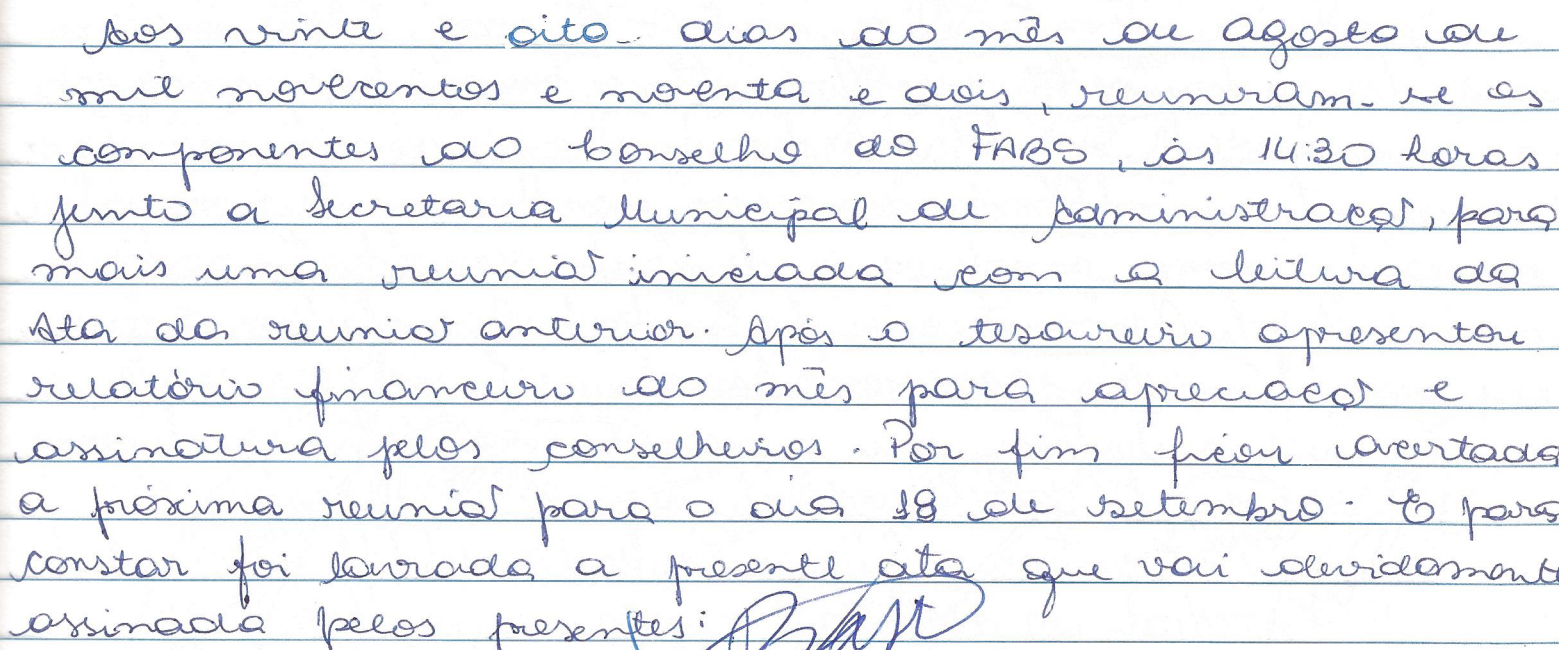 Aos vinte e oito dias do mês de agosto de
mil novecentos e noventa e dois, reuniram-se os
componentes do Conselho do FABS, às 14:30 horas
junto a Secretaria Municipal de Administração, para
mais uma reunião iniciada com a leitura da
Ata da reunião anterior. Após o tesoureiro apresentou
relatório financeiro do mês para apreciação e
assinatura pelos conselheiros. Por fim ficou acertada
a próxima reunião para o dia 18 de setembro. E para
constar foi lavrada a presente ata que vai devidamente
assinada pelos presentes: